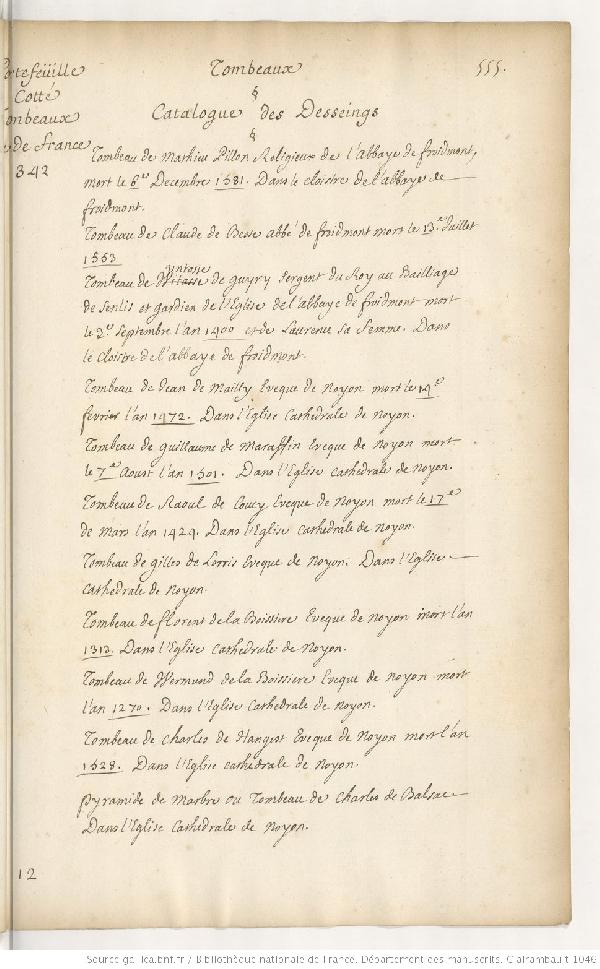 Portefeüille
Cotté
Tombeaux
de France
342
Tombeaux
555.
§
Catalogue des Desseings
§
Tombeau de Mathieu Pillon Religieux de l'abbaye de froidmont,
mort le 6.e Decembre 1581. Dans le cloistre de l'abbaye de
froidmont.
Tombeau de Claude de Besse abbé de froidmont mort le 13.e Juillet
1553
Tombeau de Witasse de guyry sergent du Roy au Bailliage
de Senlis et gardien de l'Eglise de l'abbaye de froidmont mort
le 2.e Septembre l'an 1400 et de Laurence sa femme. Dans
le cloistre de l'abbaye de froidmont.
Tombeau de Jean de Mailly Eveque de Noyon mort le 14.e
fevrier l'an 1472. Dans l'Eglise Cathedrale de Noyon.
Tombeau de guillaume de Maraffin Eveque de Noyon mort
le 7.e Aoust l'an 1501. Dans l'Eglise cathedrale de Noyon.
Tombeau de Raoul de Coucy Eveque de Noyon mort le 17.e
de Mars l'an 1424. Dans l'Eglise Cathedrale de Noyon.
Tombeau de gilles de Lorris Eveque de Noyon. Dans l'Eglise
Cathedrale de Noyon.
Tombeau de florent de la Boissiere Eveque de Noyon mort l'an
1313. Dans l'Eglise Cathedrale de Noyon.
Tombeau de Wermond de la Boissiere Eveque de Noyon mort
l'an 1270. Dans l'Eglise Cathedrale de Noyon.
Tombeau de Charles de Hangest Eveque de Noyon mort l'an
1528. Dans l'Eglise cathedrale de Noyon.
Pyramide de Marbre ou Tombeau de Charles de Balsac
Dans l'Eglise Cathedrale de Noyon.
12
Source gallica.bnf.fr / Bibliothèque nationale de France. Département des manuscrits. Clairambault 1046